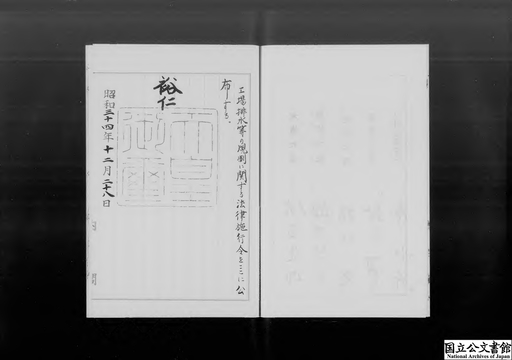 工場排水等の規制に関する法律施行令をここに公
布する。
裕仁
天皇御璽
昭和三十四年十二月二十八日
国立公文書館
National Archives of Japan